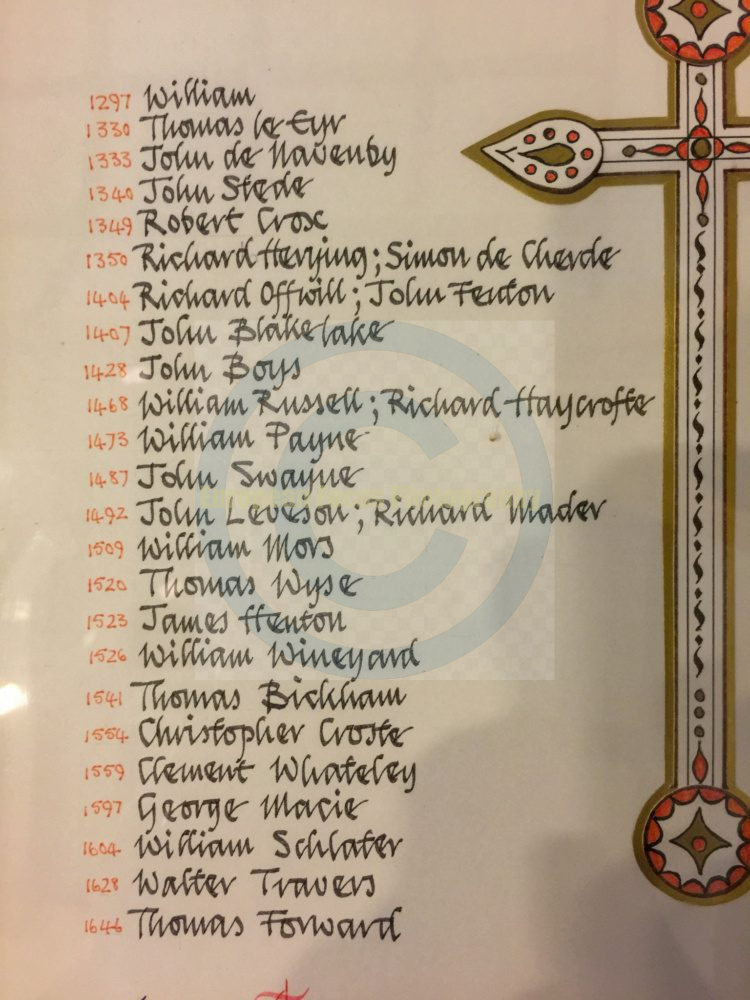 1297 William
1330 Thomas le Eyr
1333 John de Navenby
1340 John Stede
1349 Robert Crosc
1350 Richard Herying; Simon de Cherde
1404 Richard Offwill; John Fenton
1407 John Blakelake
1428 John Boys
1468 William Russell; Richard Haycrofte
1473 William Payne
1487 John Swayne
1492 John Leveson; Richard Mader
1509 William Mors
1520 Thomas Wyse
1523 James Henton
1526 William Wineyard
1541 Thomas Bickham
1554 Christopher Croste
1559 Clement Whateley
1597 George Macie
1604 William Schlater
1628 Walter Travers
1646 Thomas Forward